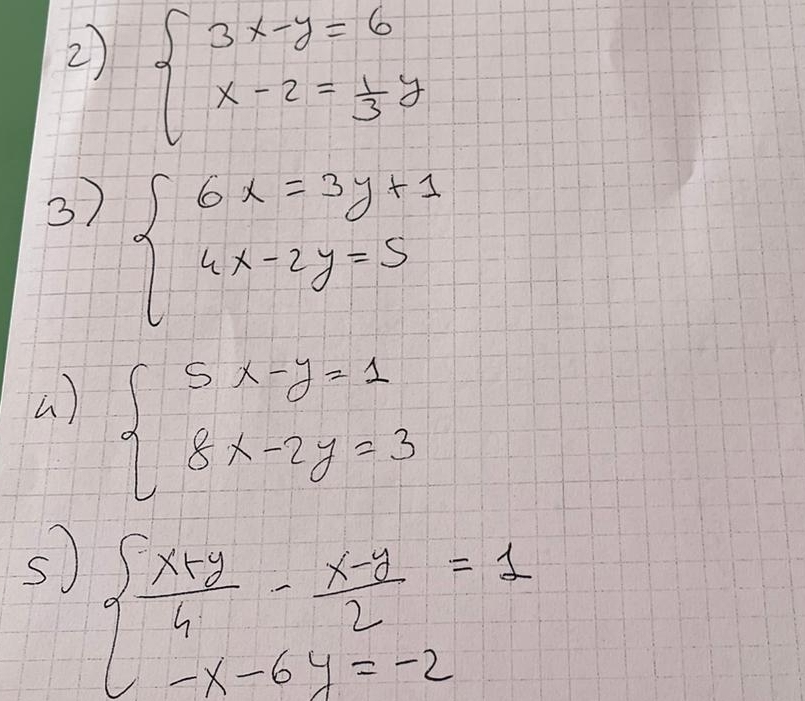 2) { 3x-y=6
x-2=1/3y
3) { 6x=3y+1
4x-2y=5
4) { 5x-y=1
8x-2y=3
5) { x+y/4 - x-y/2 = 1
-x-6y=-2